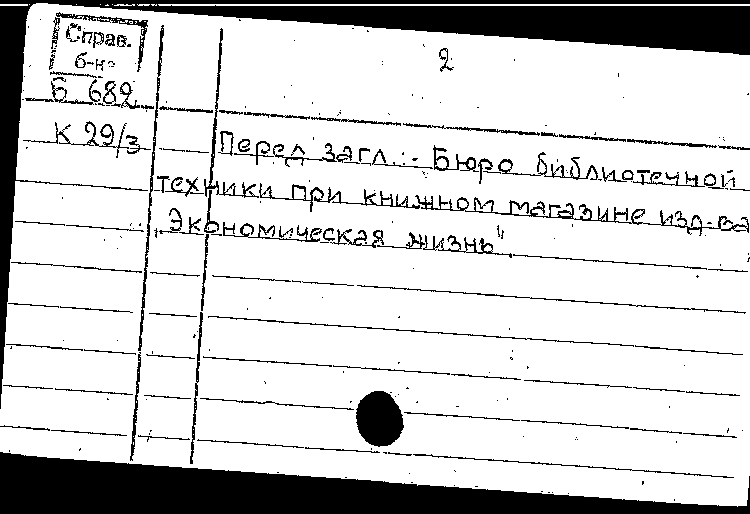 Справ.
б-ка
2
Б 682
К 29/3
Перед загл.: Бюро библиотечной
техники при книжном магазине изд-ва
„Экономическая жизнь".